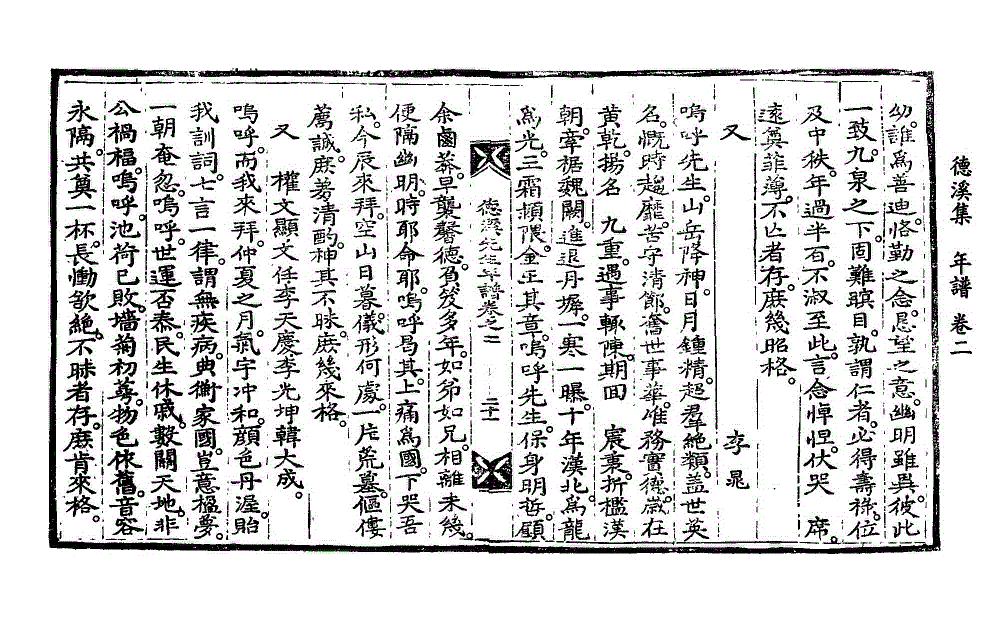 德溪集　年譜　卷二
幼。誰爲善迪。恪勤之念。懇望之意。幽明雖異。彼此
一致。九泉之下。固難瞑目。孰謂仁者。必得壽祿。位
及中秩。年過半百。不淑至此。言念悼怛。伏哭　席。
遠奠菲薄。不亡者存。庶幾昭格。
又　李晁
嗚呼先生。山岳降神。日月鍾精。超羣絶類。蓋世英
名。慨時趨靡。苦守清節。舊世事華。唯務實德。歲在
黄乾。揚名　九重。遇事輒陳。期回　宸衷。折檻漢
朝。牽裾魏闕。進退丹墀。一寒一曝。十年漢北。爲龍
爲光。二霜頻隈。金玉其章。嗚呼先生。保身明哲。顧
德溪先生年譜卷之二　二十一
余鹵莽。早襲馨德。負笈多年。如弟如兄。相離未幾。
便隔幽明。時耶命耶。嗚呼曷其。上痛爲國。下哭吾
私。今辰來拜。空山日暮。儀形何處。一片荒墓。傴僂
薦誠。庶蒡清酌。神其不昧。庶幾來格。
又　權文顯文任李天慶李光坤韓大成。
嗚呼。而我來拜。仲夏之月。氣宇冲和。顔色丹渥。貽
我訓詞。七言一律。謂無疾病。典衡家國。豈意楹夢。
一朝奄忽。嗚呼。世運否泰。民生休戚。數關天地。非
公禍福。嗚呼。池荷已敗。墻菊初蕚。物色依舊。音容
永隔。共奠一杯。長慟欲絶。不昧者存。庶肯來格。